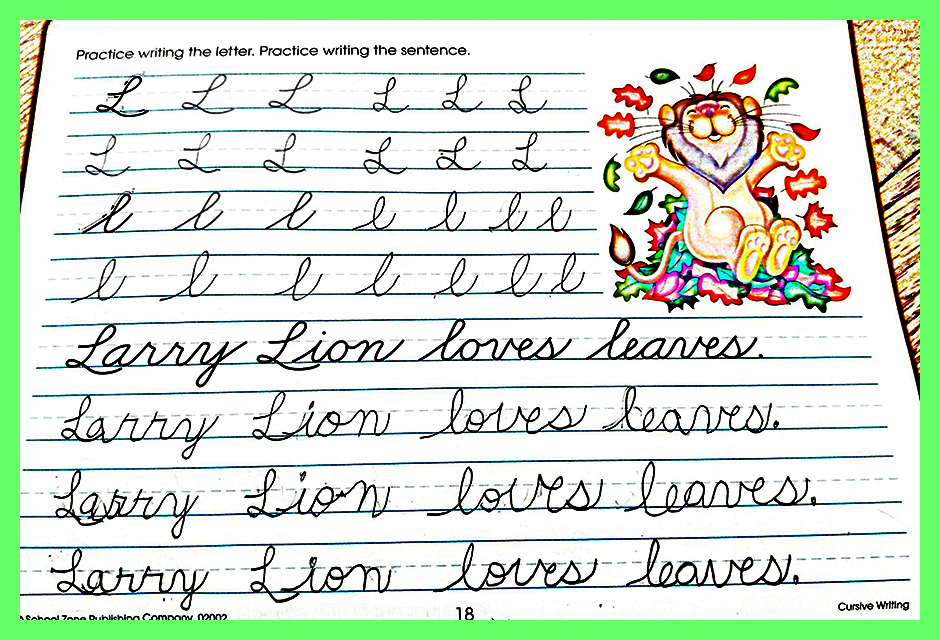 Practice writing the letter. Practice writing the sentence.
L L L L L L
L L L L L L
l l l l l l l
l l l l l l l
Larry Lion loves leaves.
Larry Lion loves leaves.
Larry Lion loves leaves.
Larry Lion loves leaves.
School Zone Publishing Company 02002 18 Cursive Writing